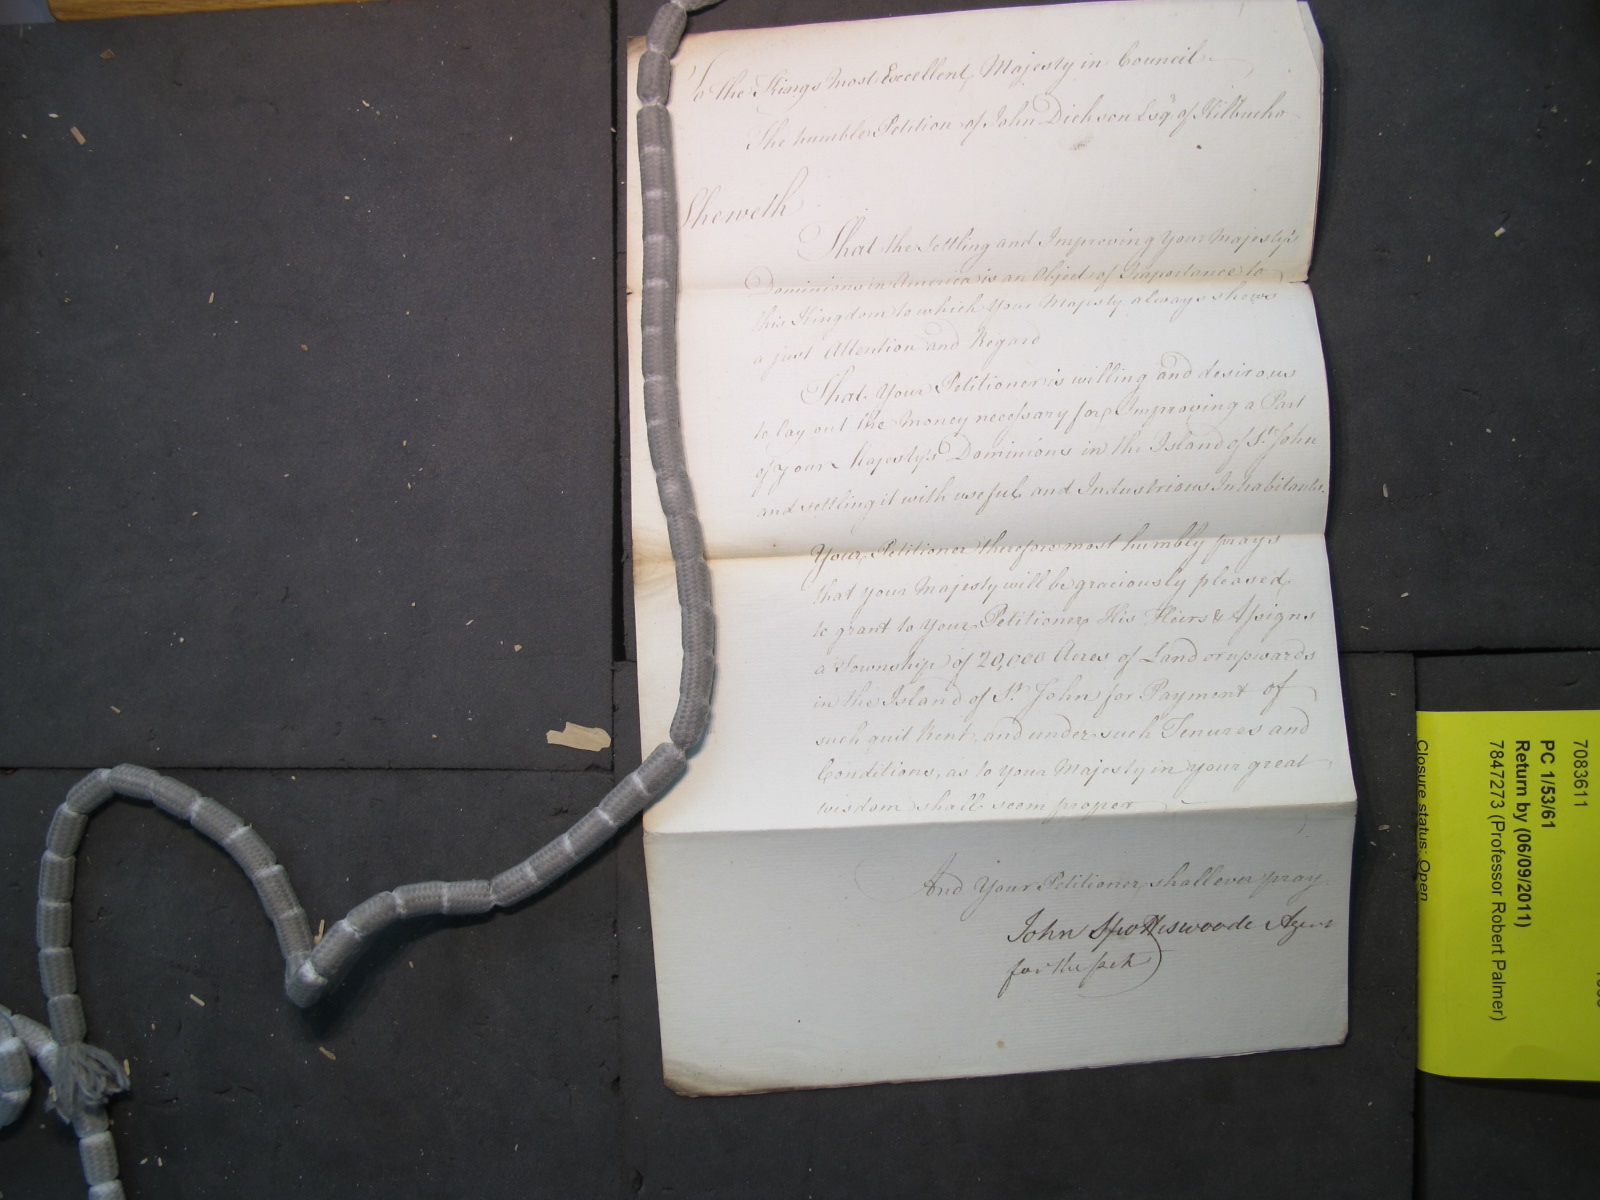 To the Kings most Excellent Majesty in Council
The humble Petition of John Dickson Esqr. of Kilbucho
Sheweth
That the settling and Improving your Majesty's
Dominions in America is an Object of Importance to
this Kingdom to which your Majesty always shews
a just Attention and Regard
That Your Petitioner is willing and desirous
to lay out the Money necessary for Improving a Part
of your Majesty's Dominions in the Island of St. John
and settling it with useful and Industrious Inhabitants.
Your Petitioner therefore most humbly prays
that your Majesty will be graciously pleased
to grant to Your Petitioner His Heirs & Assigns
a Township of 20,000 Acres of Land or upwards
in the Island of St. John for Payment of
such quit Rent and under such Tenures and
Conditions, as to your Majesty in your great
wisdom shall seem proper
And Your Petitioner shall ever pray
John Spottiswoode Agent
for the petr
7083611
PC 1/53/61
Return by (06/09/2011)
7847273 (Professor Robert Palmer)
Closure status: Open